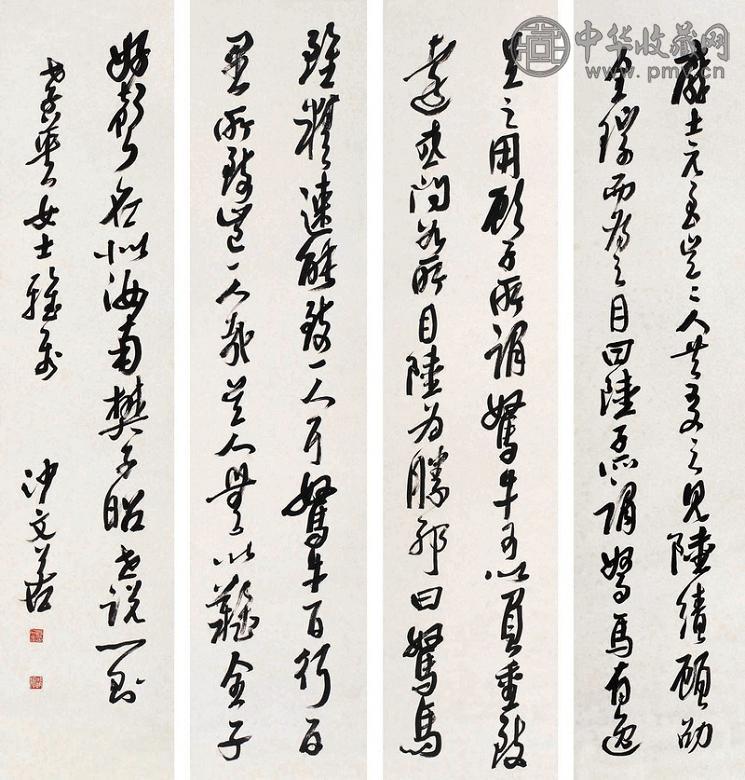 中华收藏网
www.pmcv.cn
龐士元至吳〻人共友之見陸績顧劭
全琮而為之目曰陸子所謂駑馬有逸
足之用顧子所謂駑牛可以負重致
遠或問如所目陸為勝邪曰駑馬
雖精速能致一人耳駑牛一日行百
里所致豈一人哉吳人無以難全子
好聲名似汝南樊子昭 世說一則
女士雅屬
沙文若